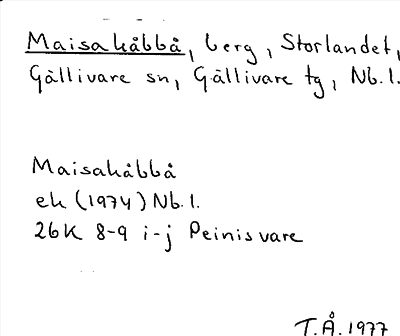 Maisakåbbå, berg, Storlandet,
Gällivare sn, Gällivare tg, Nb.l.
Maisakåbbå
ek (1974) Nb.l.
26K 8-9 i-j Peinisvare
T.Å. 1977